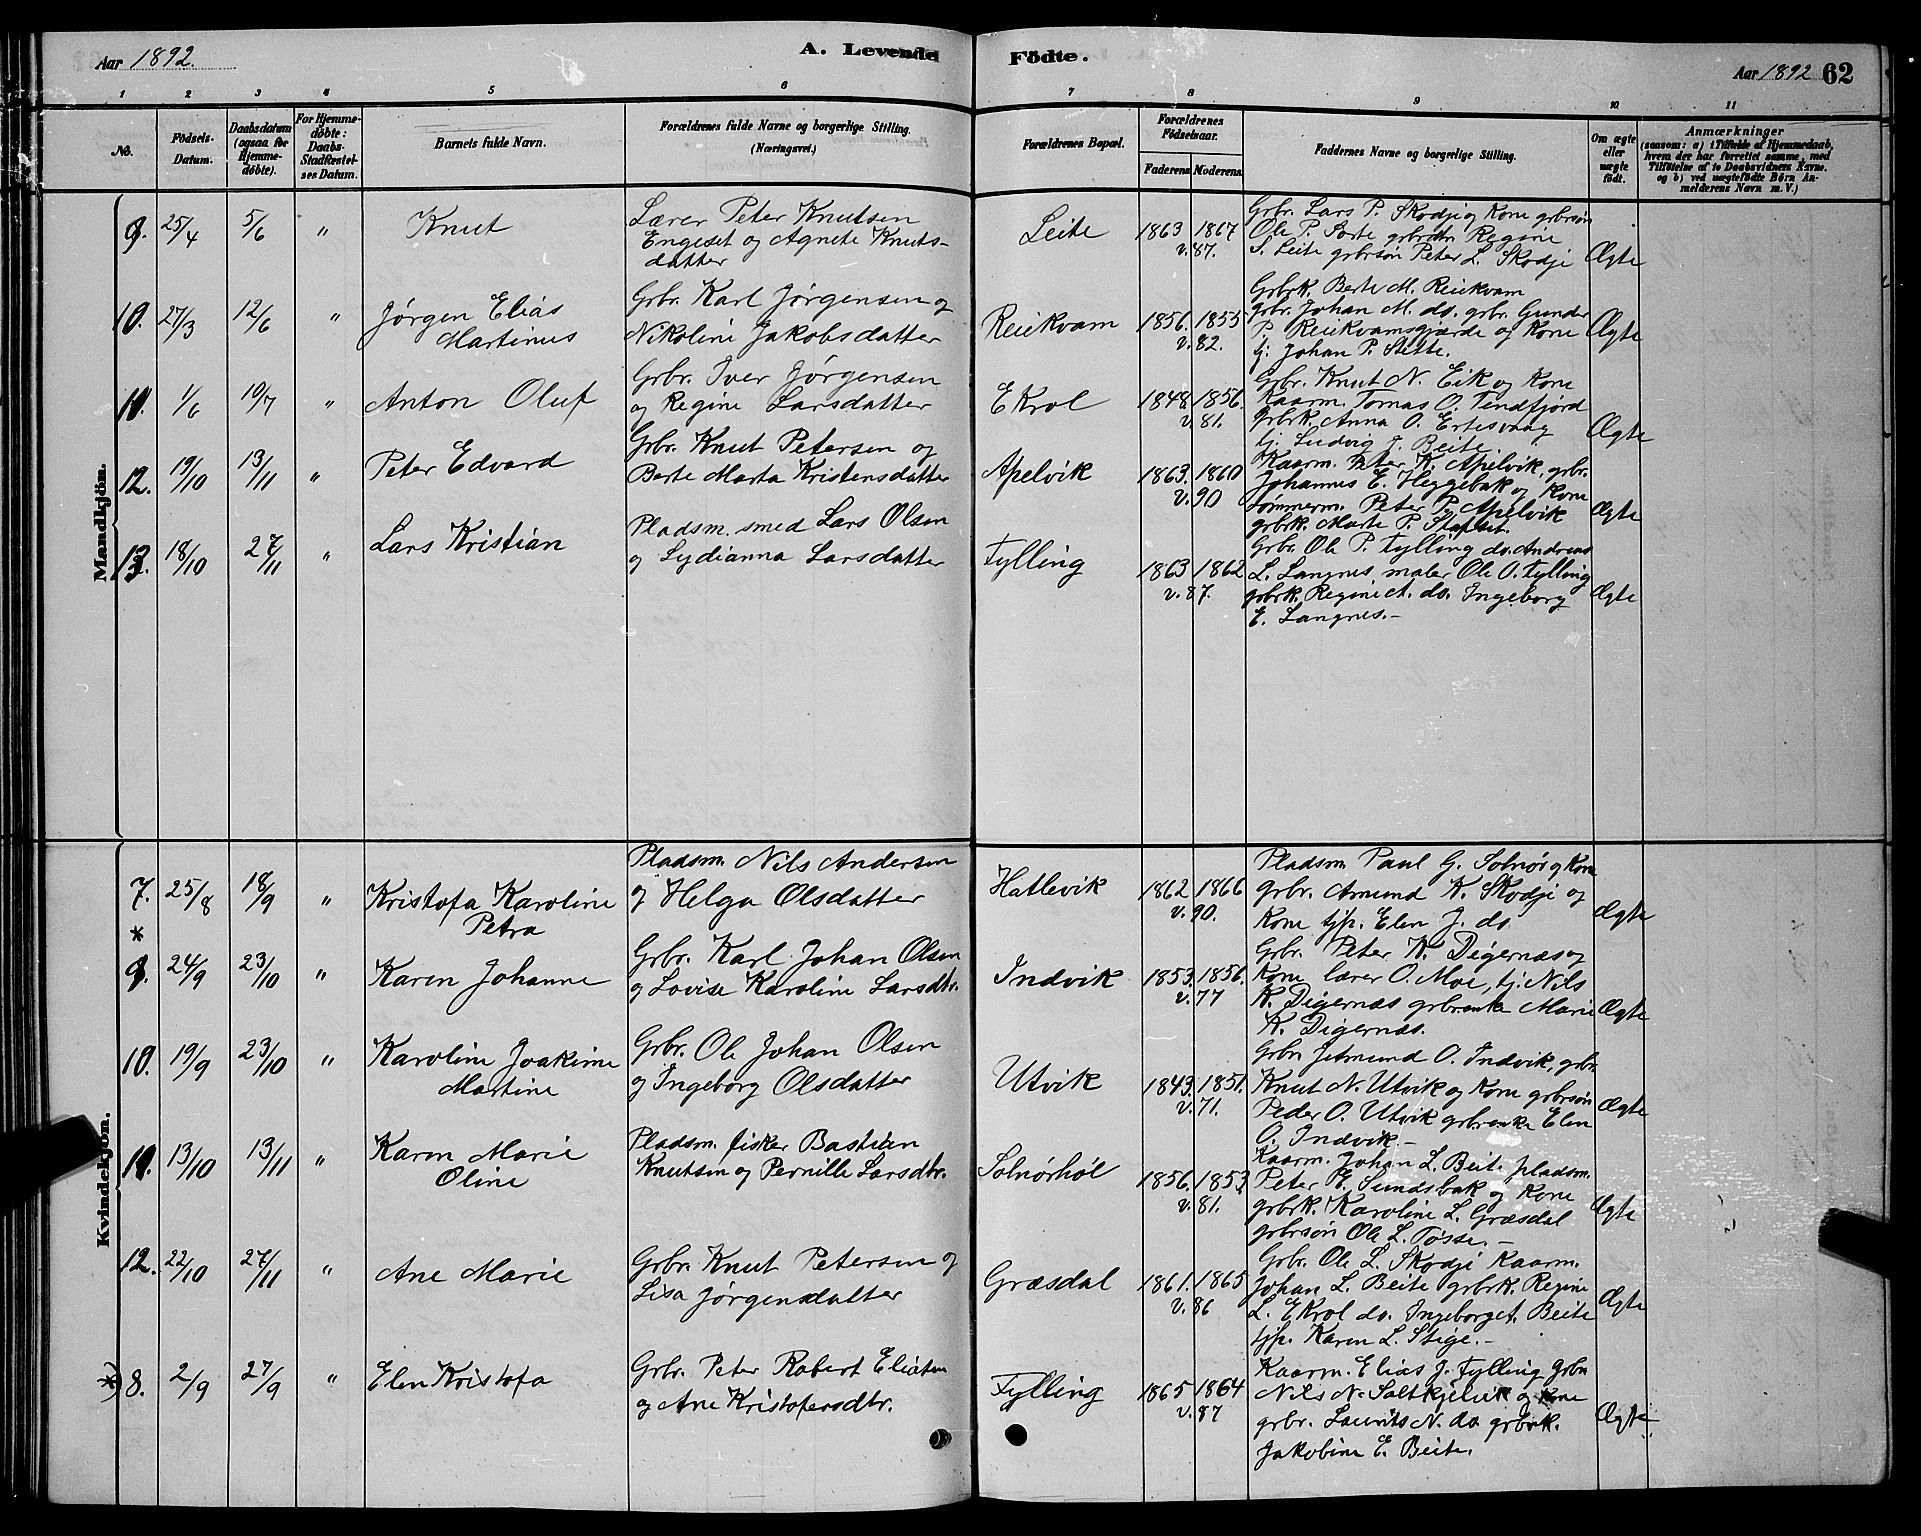 Aar 1892.
A. Levende Födte.
Aar 1892 62
1 2 3 4 5 6 7 8 9 10 11
No.
Födsels-
Datum.
Daabsdatum
(ogsaa for
Hjemme-
döbte).
For Hjemme-
döbte:
Daabs-
Stadfæstel-
ses Datum.
Barnets fulde Navn.
Forældrenes fulde Navne og borgerlige Stilling.
(Næringsvei.)
Forældrenes Bopæl.
Forældrenes
Födselsaar.
Faderens. Moderens.
Faddernes Navne og borgerlige Stilling.
Om ægte
eller
uægte
født.
Anmærkninger
(saasom: a) i Tilfælde af Hjemmedaab,
hvem der har forrettet samme, med
Tilföielse af to Daabsvidners Navne.
og b) ved uægtefödte Börn An-
melderens Navn m. V.)
Mandkjön.
9. 25/4 5/6 " Knut
Lærer Peter Knutsen
Engeset og Agnete Knuts-
datter
Leite 1863 1867
v. 87.
Grbr. Lars P. Skodje og Kone grbrsön
Ole P. Sorte grbrdtr Regine
S. Leite grbrsön Peter L. Skodje
Ægte
10. 27/3 12/6 " Jørgen Elias
Martinus
Grbr. Karl Jørgensen og
Nikoline Jakobsdatter
Reiekvam 1856. 1855
v. 82.
Grbrk. Berte M. Reiekvam
grbr. Johan M. do. grbr. Gunder
P. Reiekvamsgjærde og Kone
tj. Johan P. Stette.
Ægte
11. 1/6 10/7 " Anton Oluf
Grbr. Iver Jørgensen
og Regine Larsdatter
Ekrol 1848. 1856.
v. 81.
Grbr. Knut N. Eik og Kone
Kaarm. Tomas O. Tendfjord
Grbrk. Anna O. Ertesvaag
tj. Ludvig J. Beite.
Ægte
12. 19/10 13/11 " Peter Edvard
Grbr. Knut Petersen og
Berte Marta Kristensdatter
Apelvik 1863. 1860
v. 90
Kaarm. Peter K. Apelvik, grbr.
Johannes E. Heggebak og Kone
tømmerm. Peter P. Apelvik
grbrk. Marte P.
Ægte
13. 18/10 27/11 " Lars Kristian
Pladsm. smed Lars Olsen
og Lydianna Larsdatter
Fylling 1863 1862
v. 87.
Grbr. Ole P. Fylling do. Andreas
L. Langnes, maler Ole O. Fylling
grbrk. Regine A. do. Ingeborg
E. Langnes.-
Ægte
Kvindekjön.
7. 25/8 18/9 " Kristofa Karoline
Petra
Pladsm. Nils Andersen
og Helga Olsdatter
Hatlevik 1862 1866
v. 90.
Pladsm. Paul G. Solnör og Kone
Grbr. Amund K. Skodje og
Kone tjp. Elen J. do
Ægte
*
9. 24/9 23/10 " Karen Johanne
Grbr. Karl Johan Olsen
og Lovise Karoline Larsdtr.
Indvik 1853. 1856.
v. 77
Grbr. Peter K. Digernæs og
Kone lærer O. Moe, tj. Nils
K. Digernæs grbrenke Marie
K. Digernæs.
Ægte
10. 19/9 23/10 " Karoline Joakime
Martine
Grbr. Ole Johan Olsen
og Ingeborg Olsdatter
Utvik 1843. 1851.
v. 71.
Grbr. Jetmund O. Indvik, grbr.
Knut N. Utvik og Kone grbrsön
Peder O. Utvik grbrenke Elen
O. Indvik.-
Ægte
11. 13/10 13/11 " Karen Marie
Oline
Pladsm. fisker Bastian
Knutsen og Pernille Larsdtr.
Solnørhol 1856. 1853.
v. 81.
Kaarm. Johan L. Beite pladsm.
Peter E. Sundsbak og Kone
grbrk. Karoline L. Græsdal
grbrsön Ole L. Tosse.-
Ægte
12. 22/10 27/11 " Ane Marie
Grbr. Knut Petersen og
Lisa Jørgensdatter
Græsdal 1861. 1865
v. 86
Grbr. Ole L. Skodje Kaarm.
Johan L. Beite grbrk. Regine
L. Ekrol do. Ingeborg Beite
tjp. Karen L. Stige.-
Ægte
*) 8. 2/9 27/9 " Elen Kristofa
Grbr. Peter Robert Eliasen
og Ane Kristofersdtr.
Fylling 1865 1864
v. 87
Kaarm. Elias J. Fylling Grbr
Nils N. Saltkjelvik og Kone
grbr. Laurits N. do grbrk.
Jakobine E. Beite.
Ægte